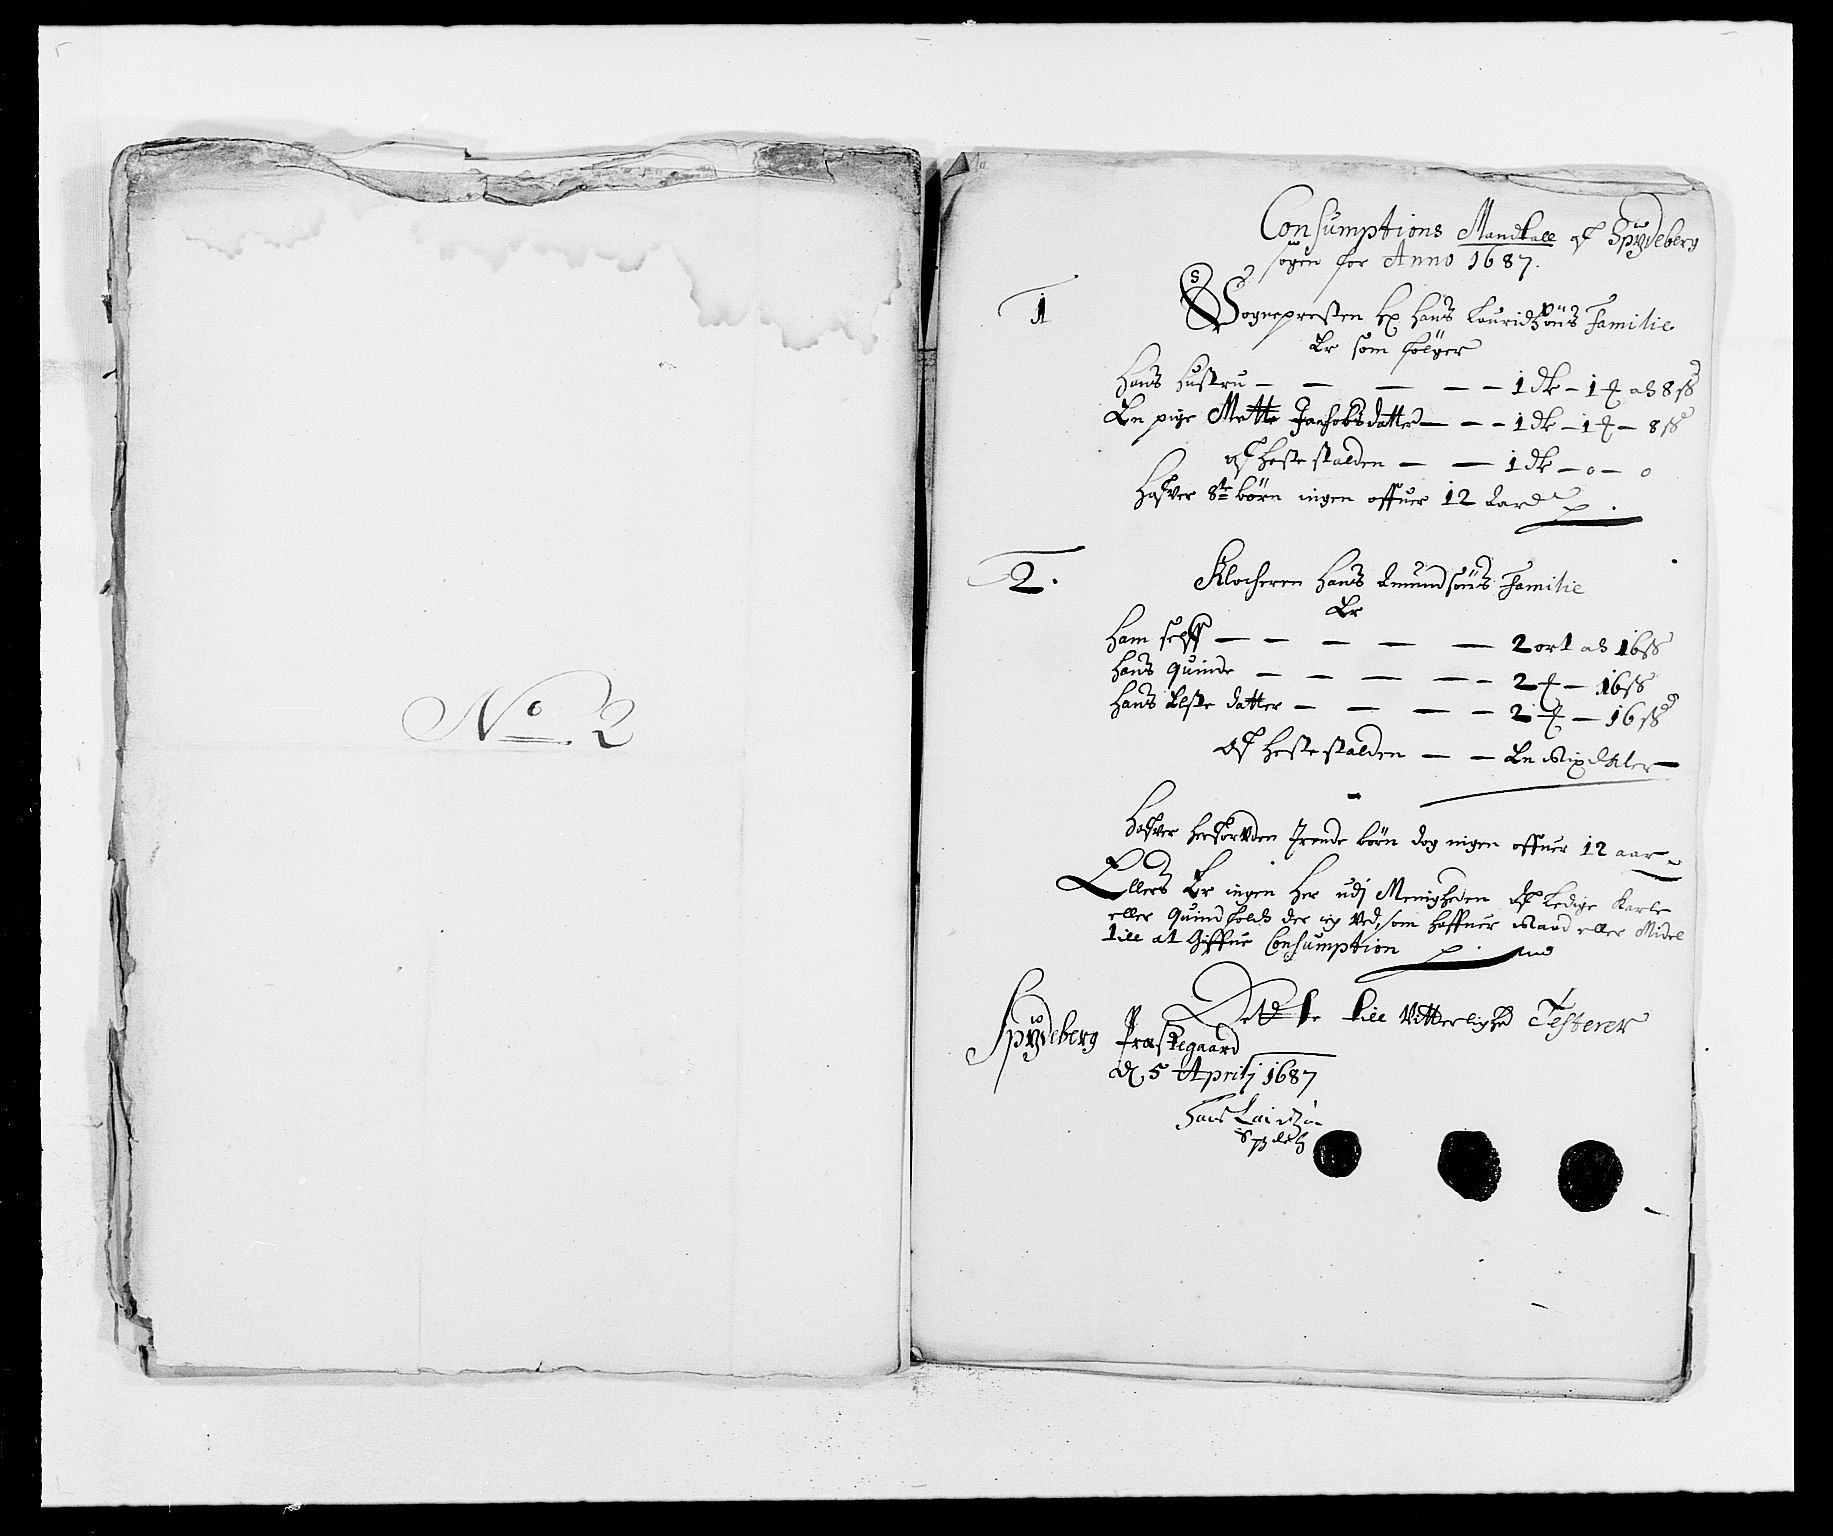 No 2
Consumptions Mandtall af Spydeberg
sogen for Anno 1687.
1
Sognepresten Hr Hans Lauridsøns Familie
Er som følger
Hans Hustru — — — — — 1 dlr — 1 ort a 8 sß
En pige Mette Jachobsdatter — — — 1 dlr — 1 ort — 8 sß
af hestestalden — — 1 dlr — 0 — 0
Hafver 8te børn ingen offuer 12 aar
2.
Klocheren Hans Amundsøns Familie
Er
Ham self — — — — — 2 ort a 16 sß
Hans quinde — — — — — 2 ort — 16 sß
Hans Elste datter — — — — 2 ort — 16 sß
Af hestestalden — — En Rixdaler
Hafver herforuden børn dog ingen offuer 12 aar
Ellers Er ingen her udj Menigheden af Ledige Karle
eller Quindfolch der sig Ved, som haffuer Raad eller Midel
till at Giffue Consumption
Dette till Vitterlighed Testerer
Spydeberg Præstegaard
d. 5 Aprilj 1687
Hans